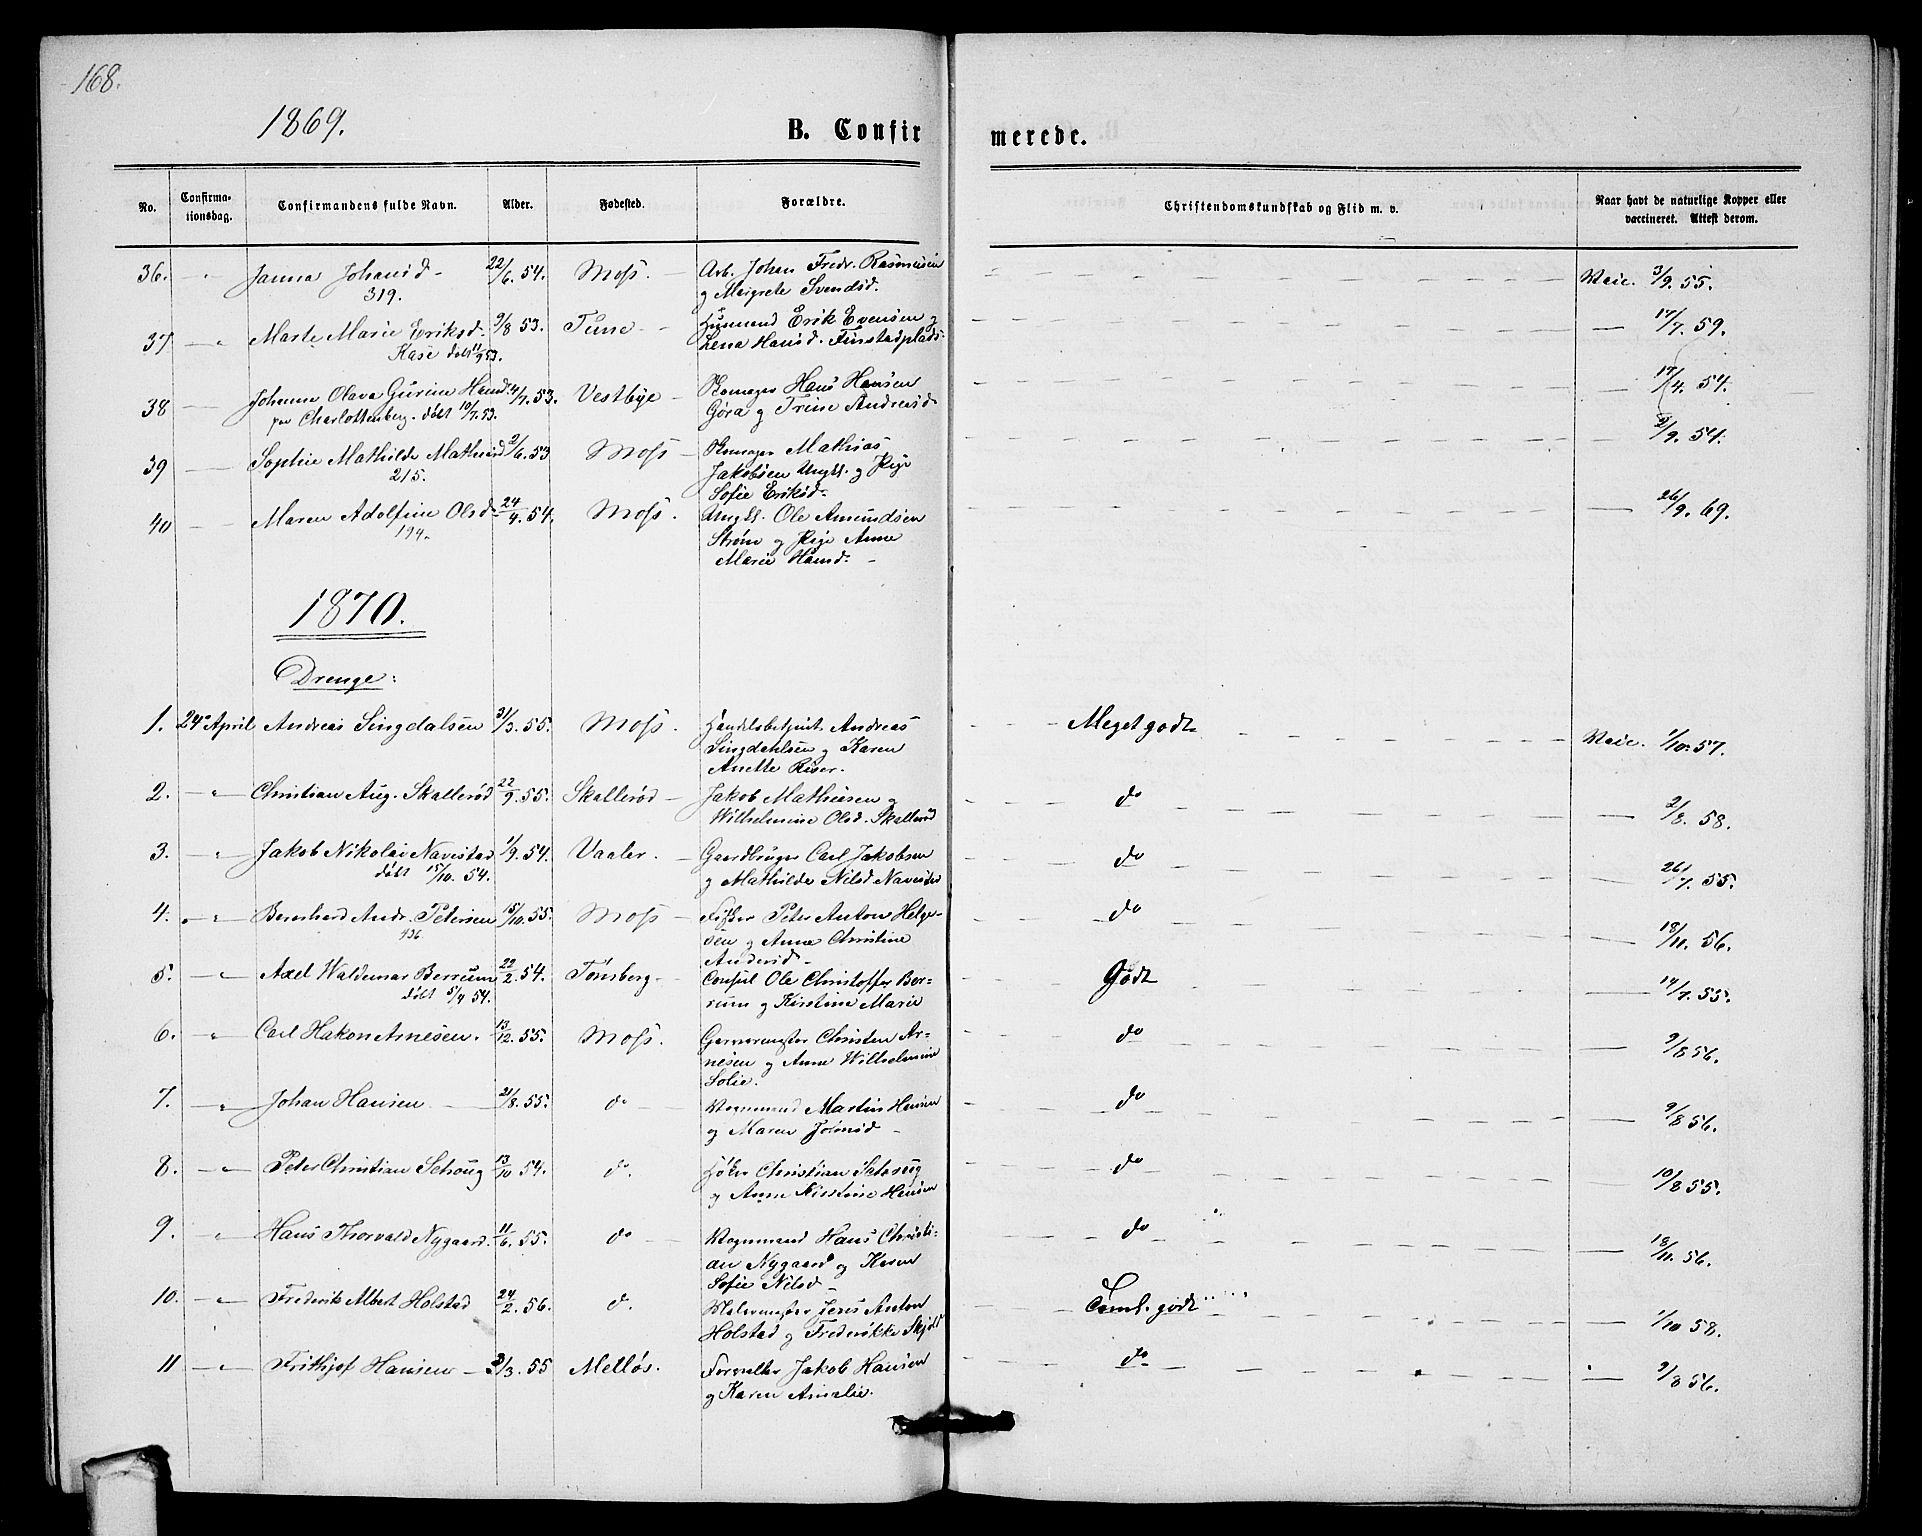 168.
1869.
B. Confir
merede.
No.
Confirma-
tionsdag.
Confirmandens fulde Navn.
Alder.
Fødested.
Forældre.
Christendomskundskab og Flid m. v.
Naar havt de naturlige Kopper eller
vaccineret. Attest derom.
36. Janna Johansd 22/6. 54. Moss. Arb. Johan Fredr. Rasmussen Vacc. 3/9. 55.
319. og Margrete Svendsd.
37 Marte Marie Eriksd. 9/8 53. Tune Husmand Erik Evensen og 17/7. 59.
Kase døbt 11/9 53. Lena Hansd. Finstadplads
38 Johanne Olava Gurine Hansd. 4/7. 53. Vestbye Hans Hansen 17/4. 54.
paa Charlottenberg. døbt 10/7. 53. Gjøra og Trine Andreasd
39 Sophie Mathilde Mathiasd 2/6. 53 Moss Mathias 2/9. 54.
215. Jakobsen Ungk. og Pige
Sofie Eriksd
40 Maren Adolfine Olsd. 24/4. 54. Moss. Ungk. Ole Amundsen 26/9. 69.
194. Strøm og Pige Anne
Marie Hansd.
1870.
Drenge:
1. 24de April Andreas Singdalsen 31/3. 55. Moss. Handelsbetjent Andreas Meget godt Vacc. 1/10. 57.
Singdahlsen og Karen
Anette Riser.
2. Christian Aug. Skallerød 22/9. 55. Skallerød Jakob Mathisen og do 2/8. 58.
Wilhelmine Olsd. Skallerød
3. Jakob Nikolai Navestad 1/9. 54. Vaaler. Gaardbruger Carl Jakobsen do 26/7. 55.
døbt 15/10. 54. og Mathilde Nilsd Navestad
4. Bernhard Andr. Petersen 15/10. 55. Moss Fisker Peter Anton Helge- do 18/11. 56.
436 sen og Anne Christine
Andersd
5. Axel Waldemar Berrum 22/2. 54. Tønsberg Consul Ole Christoffer Ber- Godt 14/7. 55.
døbt 5/4 54. rum og Kirstine Marie
6. Carl Hakon Arnesen. 13/12. 55. Moss. Garvermester Christen Ar- do 9/8 56.
nesen og Anne Wilhelmine
Solie.
7. Johan Hansen 21/8. 55. do Vognmand Martin Hansen do 9/8 56.
og Maren
8. Peter Christian Schoug 13/10 54. do. Christian Schoug do 10/8 55.
og Anne Kirstine Hansen
9. Hans Thorvald Nygaard. 11/6. 55. do Vognmand Hans Christi- do 18/11. 56.
an Nygaard og Karen
Sofie Nilsd
10. Frederik Albert Holstad 24/2. 56. do. Malermester Jens Anton Teml. godt 1/10 58.
Holstad og Frederikke Skjølt
11 Frithjof Hansen 3/3. 55 Melløs. Forvalter Jakob Hansen do 9/8 56.
og Karen Amalie.